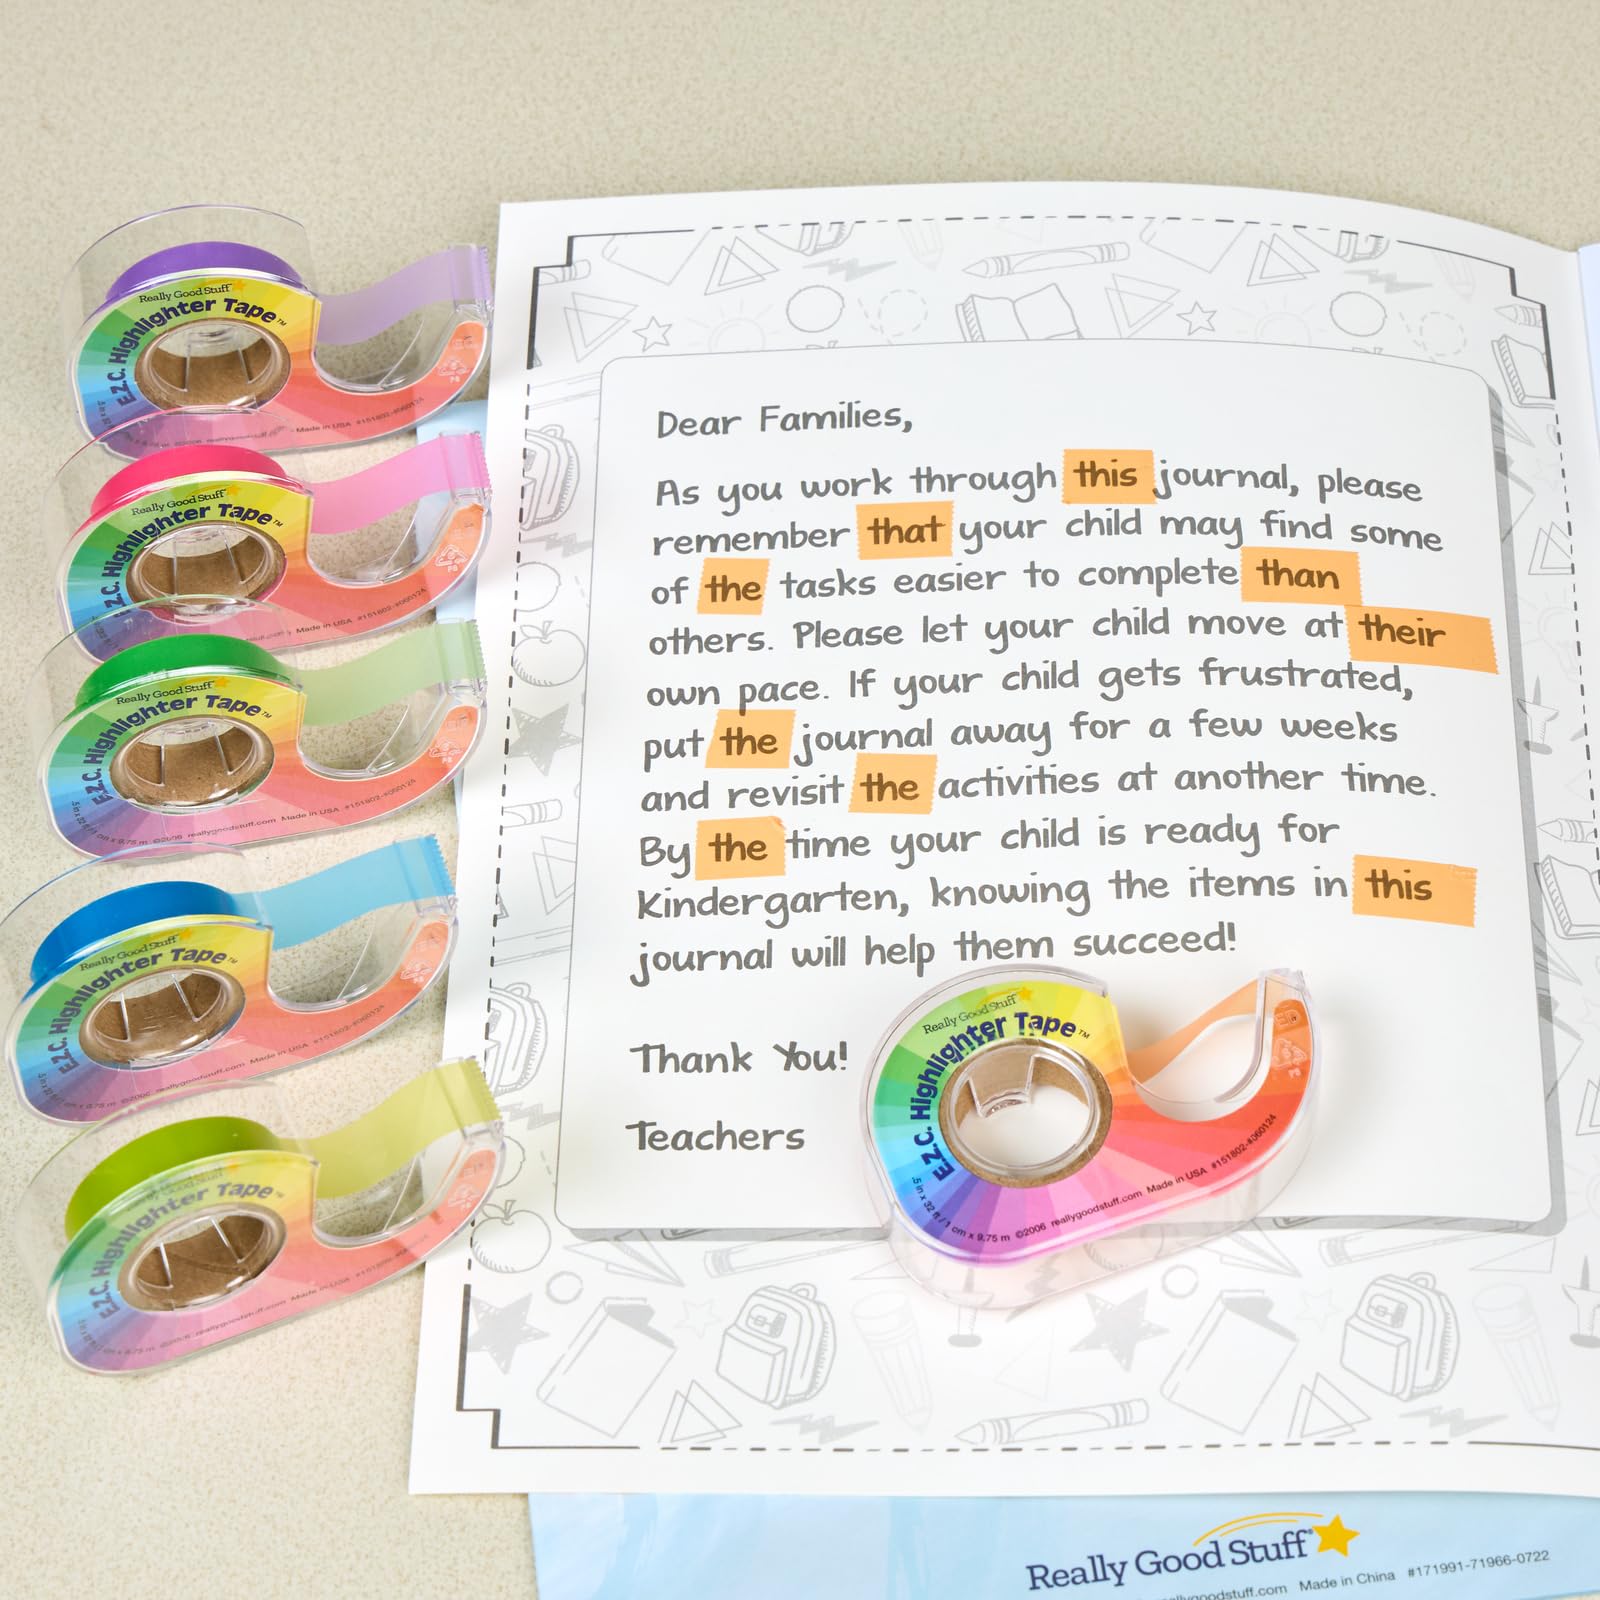 Really Good Stuff
E.Z.C. Highlighter Tape™
Made in USA #151802-#060124
Really Good Stuff
E.Z.C. Highlighter Tape™
Made in USA #151802-#060124
Really Good Stuff
E.Z.C. Highlighter Tape™
.5 in x 32 ft / 1 cm x 9.75 m ©2006 reallygoodstuff.com Made in USA #151802-#060124
Really Good Stuff
E.Z.C. Highlighter Tape™
.5 in x 32 ft / 1 cm x 9.75 m ©2006 reallygoodstuff.com Made in USA #151802-#060124
Really Good Stuff
E.Z.C. Highlighter Tape™
reallygoodstuff.com Made in USA #151802-#060124
Dear Families,
As you work through this journal, please
remember that your child may find some
of the tasks easier to complete than
others. Please let your child move at their
own pace. If your child gets frustrated,
put the journal away for a few weeks
and revisit the activities at another time.
By the time your child is ready for
Kindergarten, knowing the items in this
journal will help them succeed!
Thank You!
Teachers
Really Good Stuff
E.Z.C. Highlighter Tape™
.5 in x 32 ft / 1 cm x 9.75 m ©2006 reallygoodstuff.com Made in USA #151802-#060124
Really Good Stuff®
Made in China #171991-71966-0722